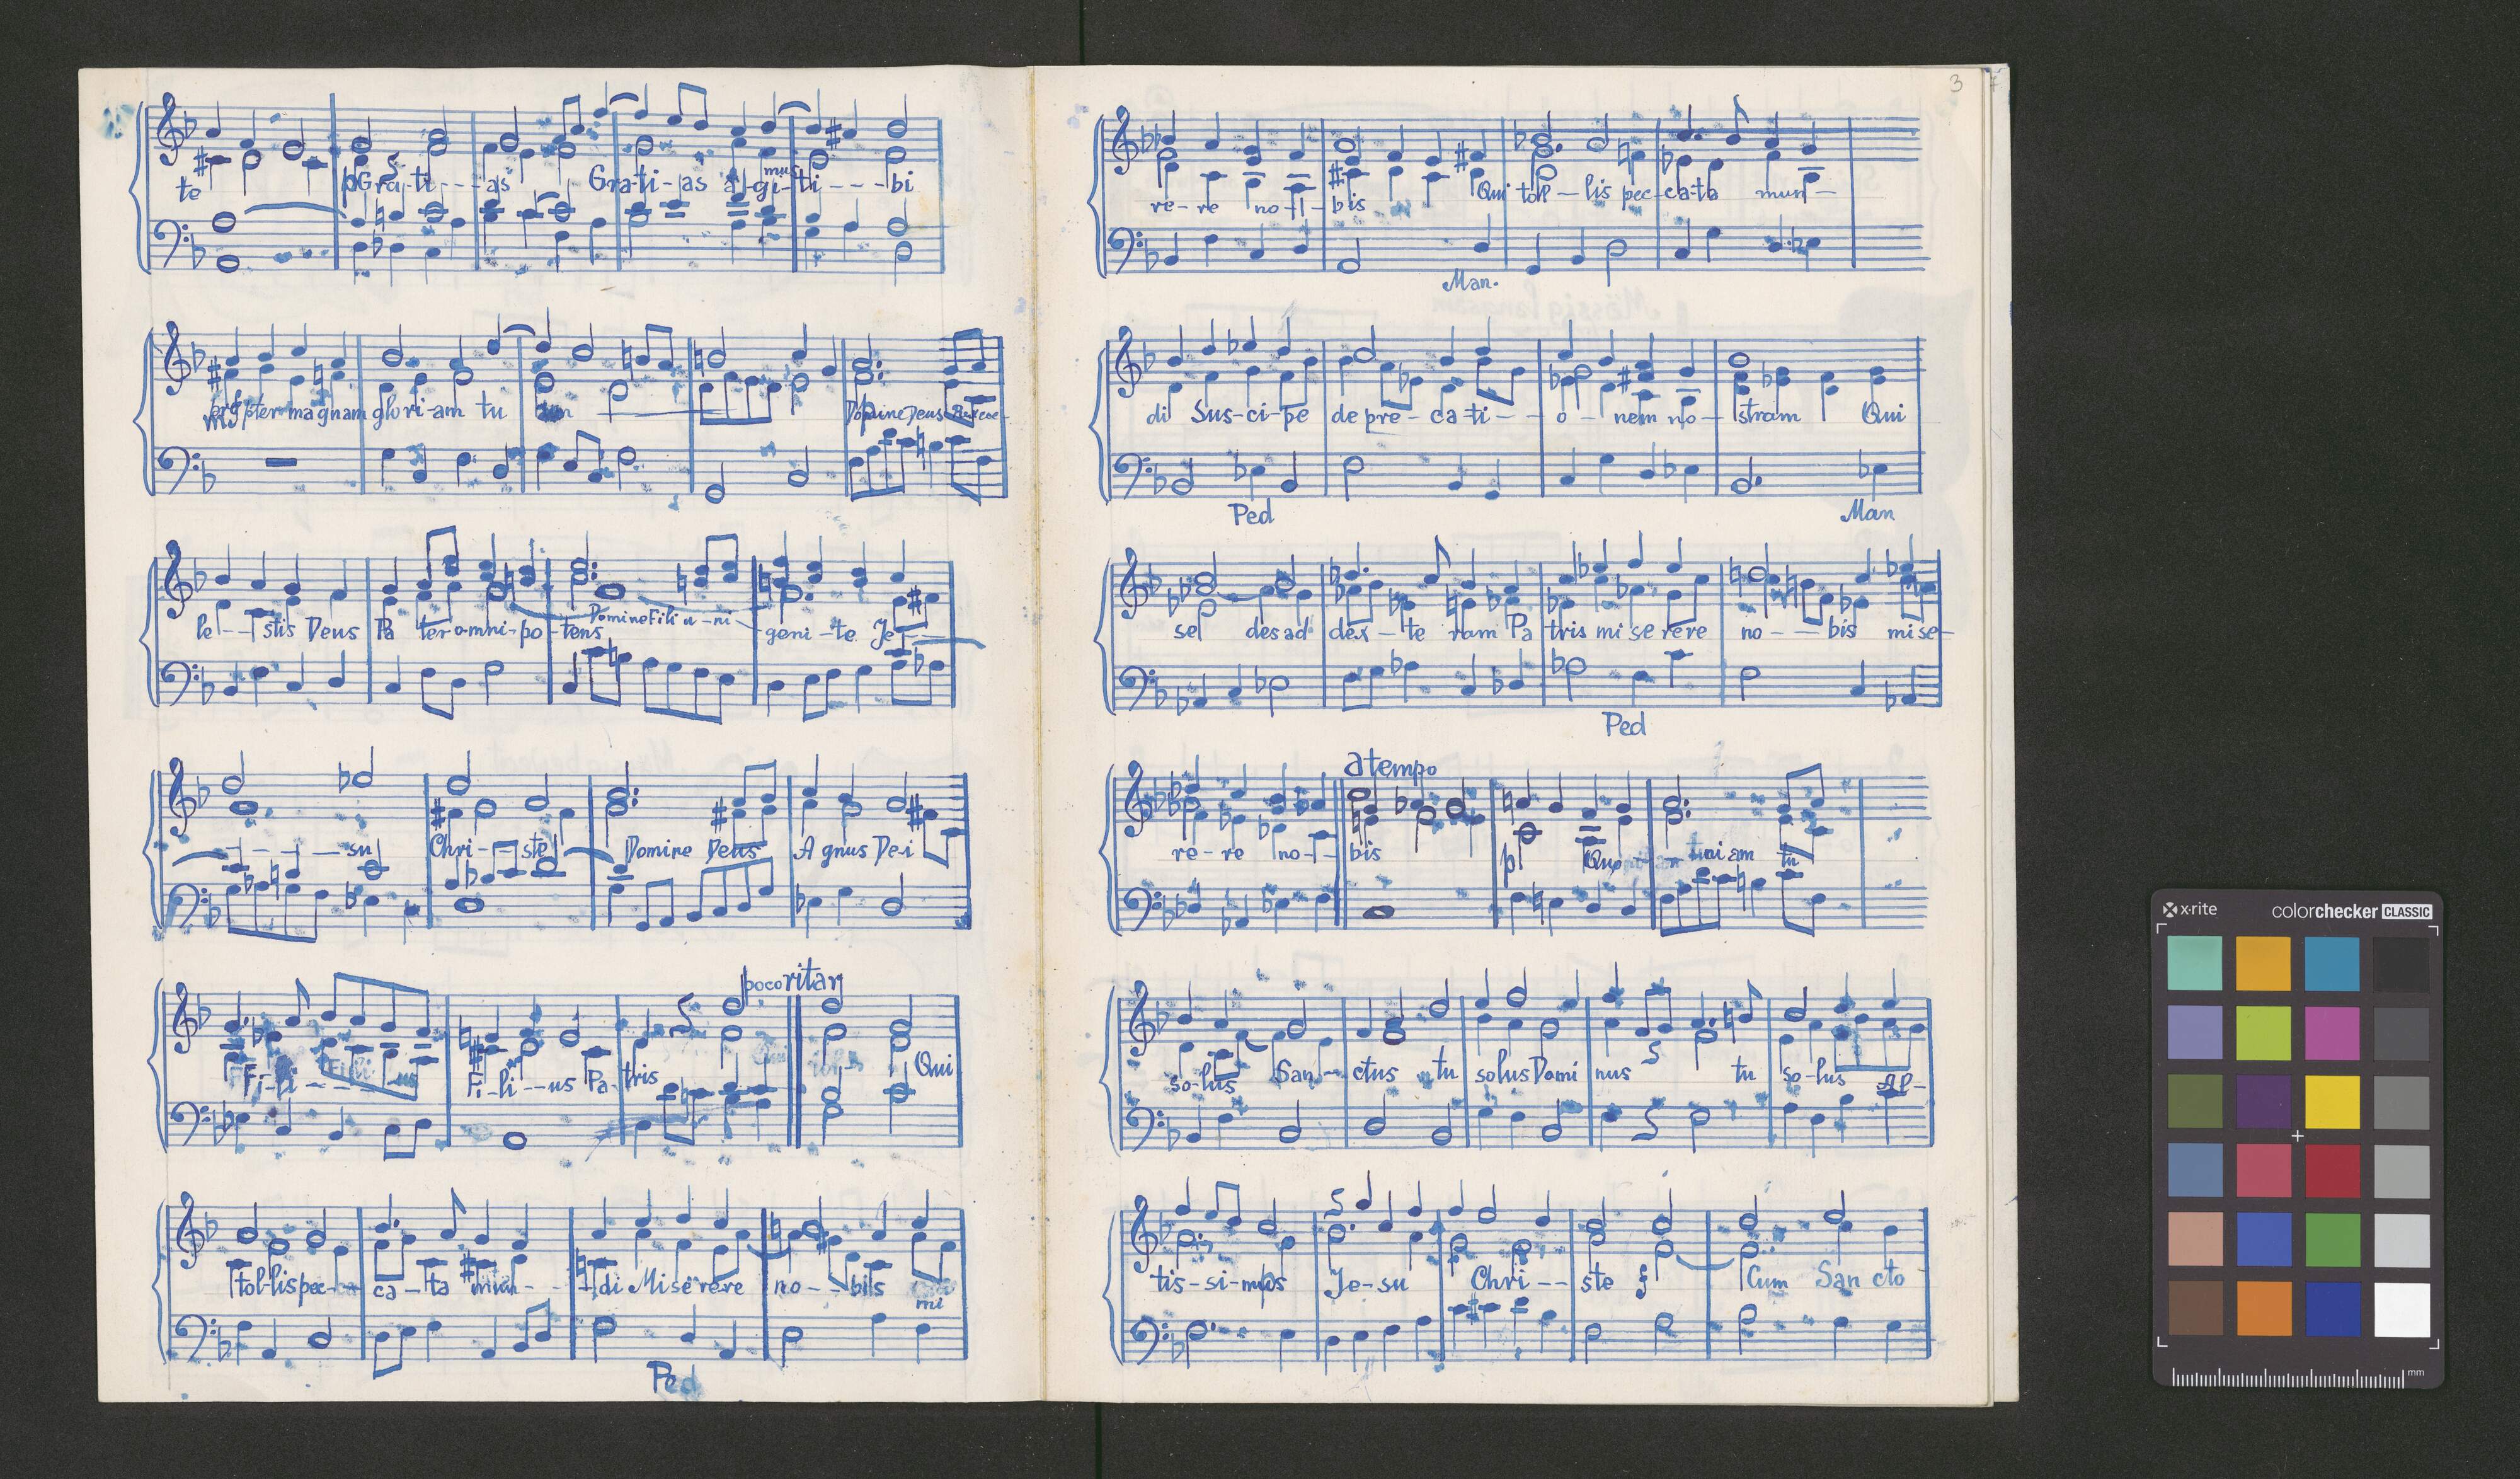 te pGra-ti---as Gra-ti-as a-gi-mus ti---bi
propter magnam glori-am tu am Domine Deus Rex coe-
le--stis Deus Pa ter omni-po-tens Domine Fili u-ni-geni-te Je-
----su Chri--ste Domine Deus A gnus De-i
poco ritar
Fi-li-- Fi-li--us Pa-tris Qui
tol-lis pec- ca-ta mun--di Mise rere no--bis mi
Ped
3
re-re no-- bis Qui toll-lis pec-ca-ta mun-
Man.
di Sus-ci-pe de pre-ca-ti-- o-nem no-stram Qui
Ped Man
se des ad dex-te ram Pa tris mi se rere no--bis mise-
Ped
a tempo
re-re no-- bis p Quo niam tu
so-lus San-ctus tu solus Domi nus tu so-lus Al-
tis-si-mus Je-su Chri--ste f Cum San cto
x-rite colorchecker CLASSIC
mm